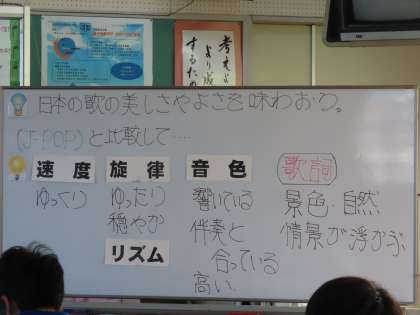 考えよ
より成
するため
日本の歌の美しさやよさを味わおう。
(J-POP)と比較して…
速度 旋律 音色 歌詞
ゆっくり ゆったり 響いている 景色・自然
穏やか 伴奏と 情景が浮かぶ
リズム 合っている
高い